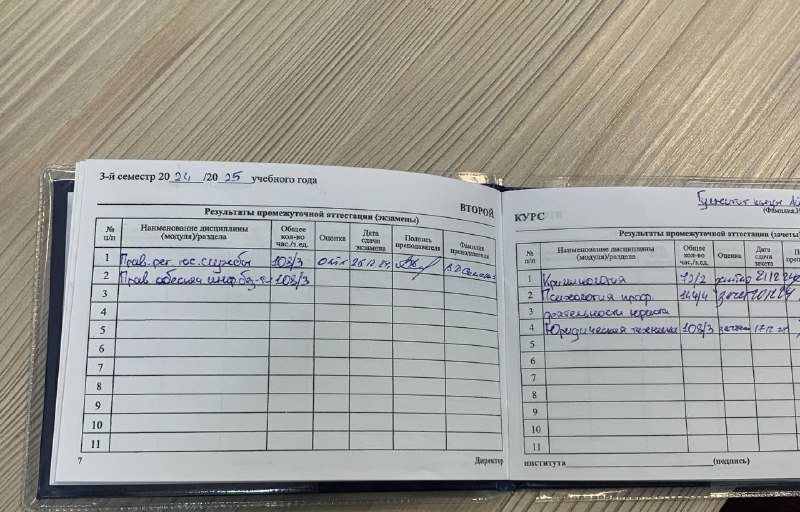 3-й семестр 20 24 /20 25 учебного года
ВТОРОЙ
Результаты промежуточной аттестации (экзамены)
№ п/п Наименование дисциплины (модуля)/раздела Общее кол-во час./з.ед. Оценка Дата сдачи экзамена Подпись преподавателя Фамилия преподавателя
1 Прав. рег. гос. службы 108/3 отл 26.12.24
2 Прав. обеспеч инф. без-ти 108/3
3
4
5
6
7
8
9
10
11
7 Директор
КУРС
(Фамилия,
Результаты промежуточной аттестации (зачеты)
№ п/п Наименование дисциплины (модуля)/раздела Общее кол-во час./з.ед. Оценка Дата сдачи зачета
1 Криминология 72/2 21.12.24
2 Психология проф. 144/4 зачет 20.12.24
3 деятельности юриста
4 Юридическая техника 108/3 зачтен 17.12.24
5
6
7
8
9
10
11
института (подпись)